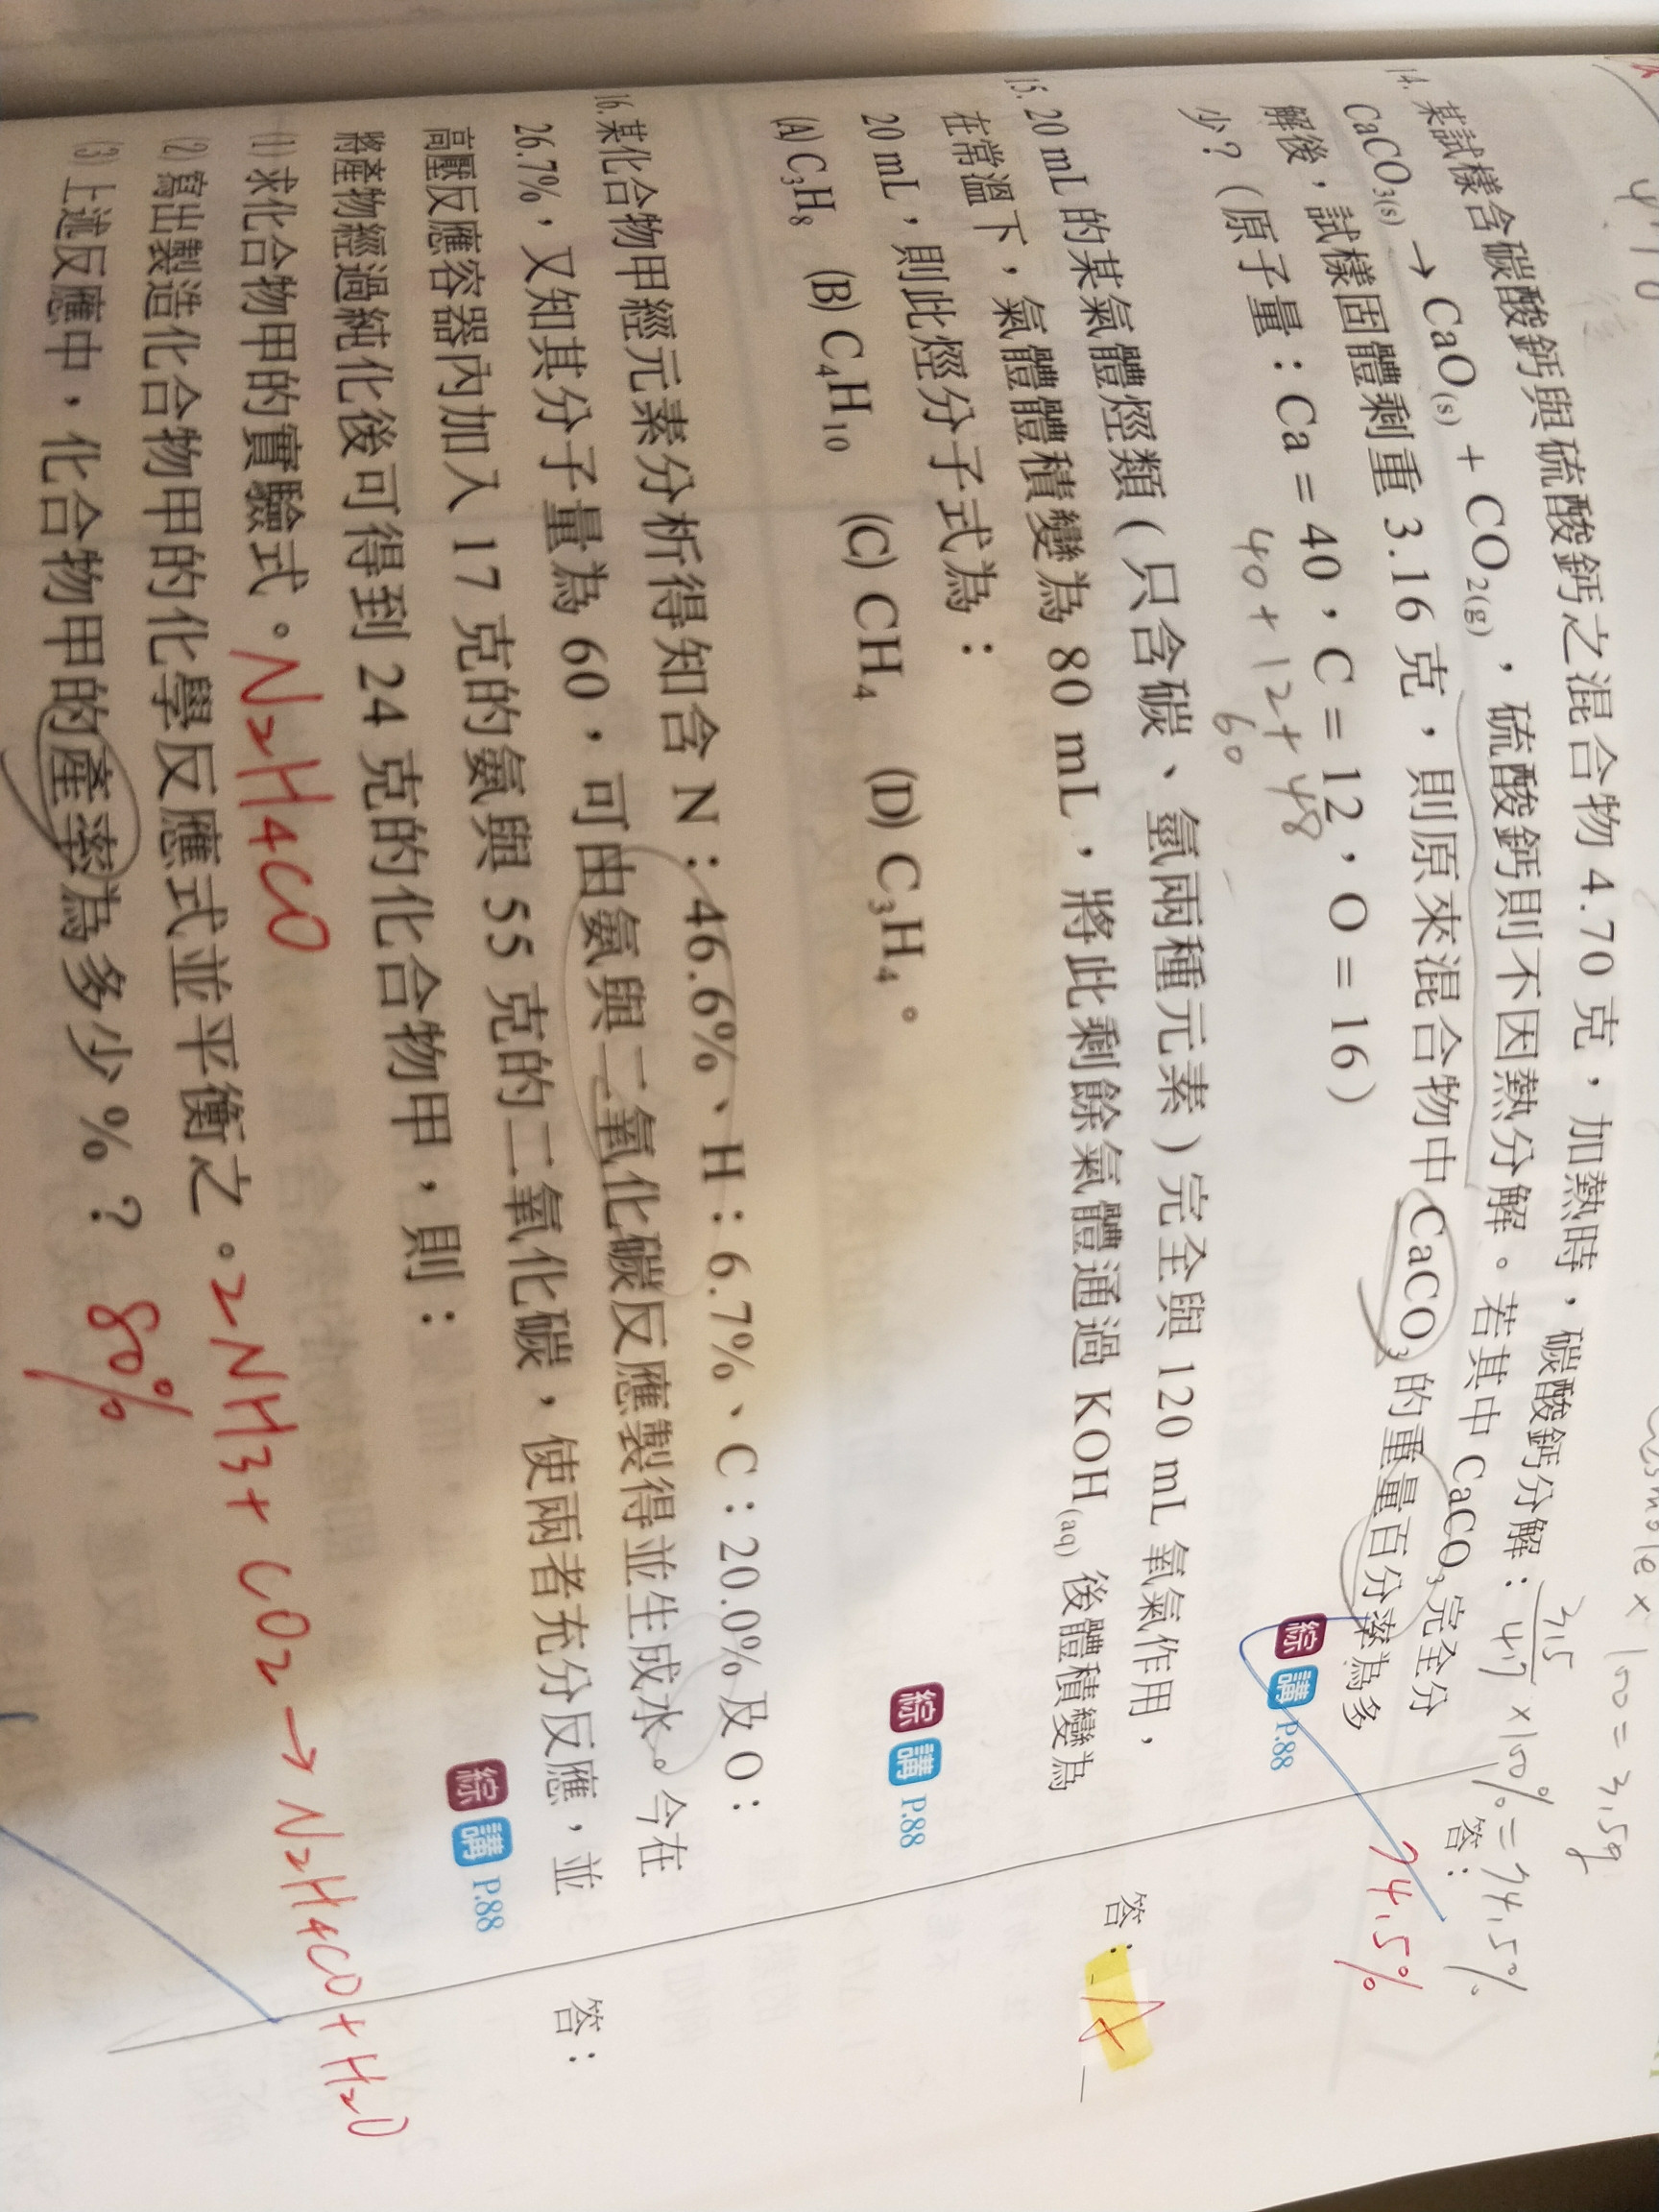 4.70
14. 某試樣含碳酸鈣與硫酸鈣之混合物 4.70 克，加熱時，碳酸鈣分解：
CaCO₃₍s₎ → CaO₍s₎ + CO₂₍g₎，硫酸鈣則不因熱分解。若其中 CaCO₃ 完全分
解後，試樣固體剩重 3.16 克，則原來混合物中 CaCO₃ 的重量百分率為多
少？（原子量：Ca = 40，C = 12，O = 16）
綜 講 P.88
× 100 = 3.5g
3.5
4.7 × 100% = 74.5%
40 + 12 + 48
60
答：
74.5%
15. 20 mL 的某氣體烴類（只含碳、氫兩種元素）完全與 120 mL 氧氣作用，
在常溫下，氣體體積變為 80 mL，將此剩餘氣體通過 KOH₍aq₎ 後體積變為
20 mL，則此烴分子式為：
綜 講 P.88
(A) C₃H₈ (B) C₄H₁₀ (C) CH₄ (D) C₃H₄。
答：A
16. 某化合物甲經元素分析得知含 N：46.6%、H：6.7%、C：20.0%及 O：
26.7%，又知其分子量為 60，可由氨與二氧化碳反應製得並生成水。今在
高壓反應容器內加入 17 克的氨與 55 克的二氧化碳，使兩者充分反應，並
將產物經過純化後可得到 24 克的化合物甲，則：
綜 講 P.88
答：
(1) 求化合物甲的實驗式。N₂H₄CO
(2) 寫出製造化合物甲的化學反應式並平衡之。2NH₃ + CO₂ → N₂H₄CO + H₂O
(3) 上述反應中，化合物甲的產率為多少 %？ 80%